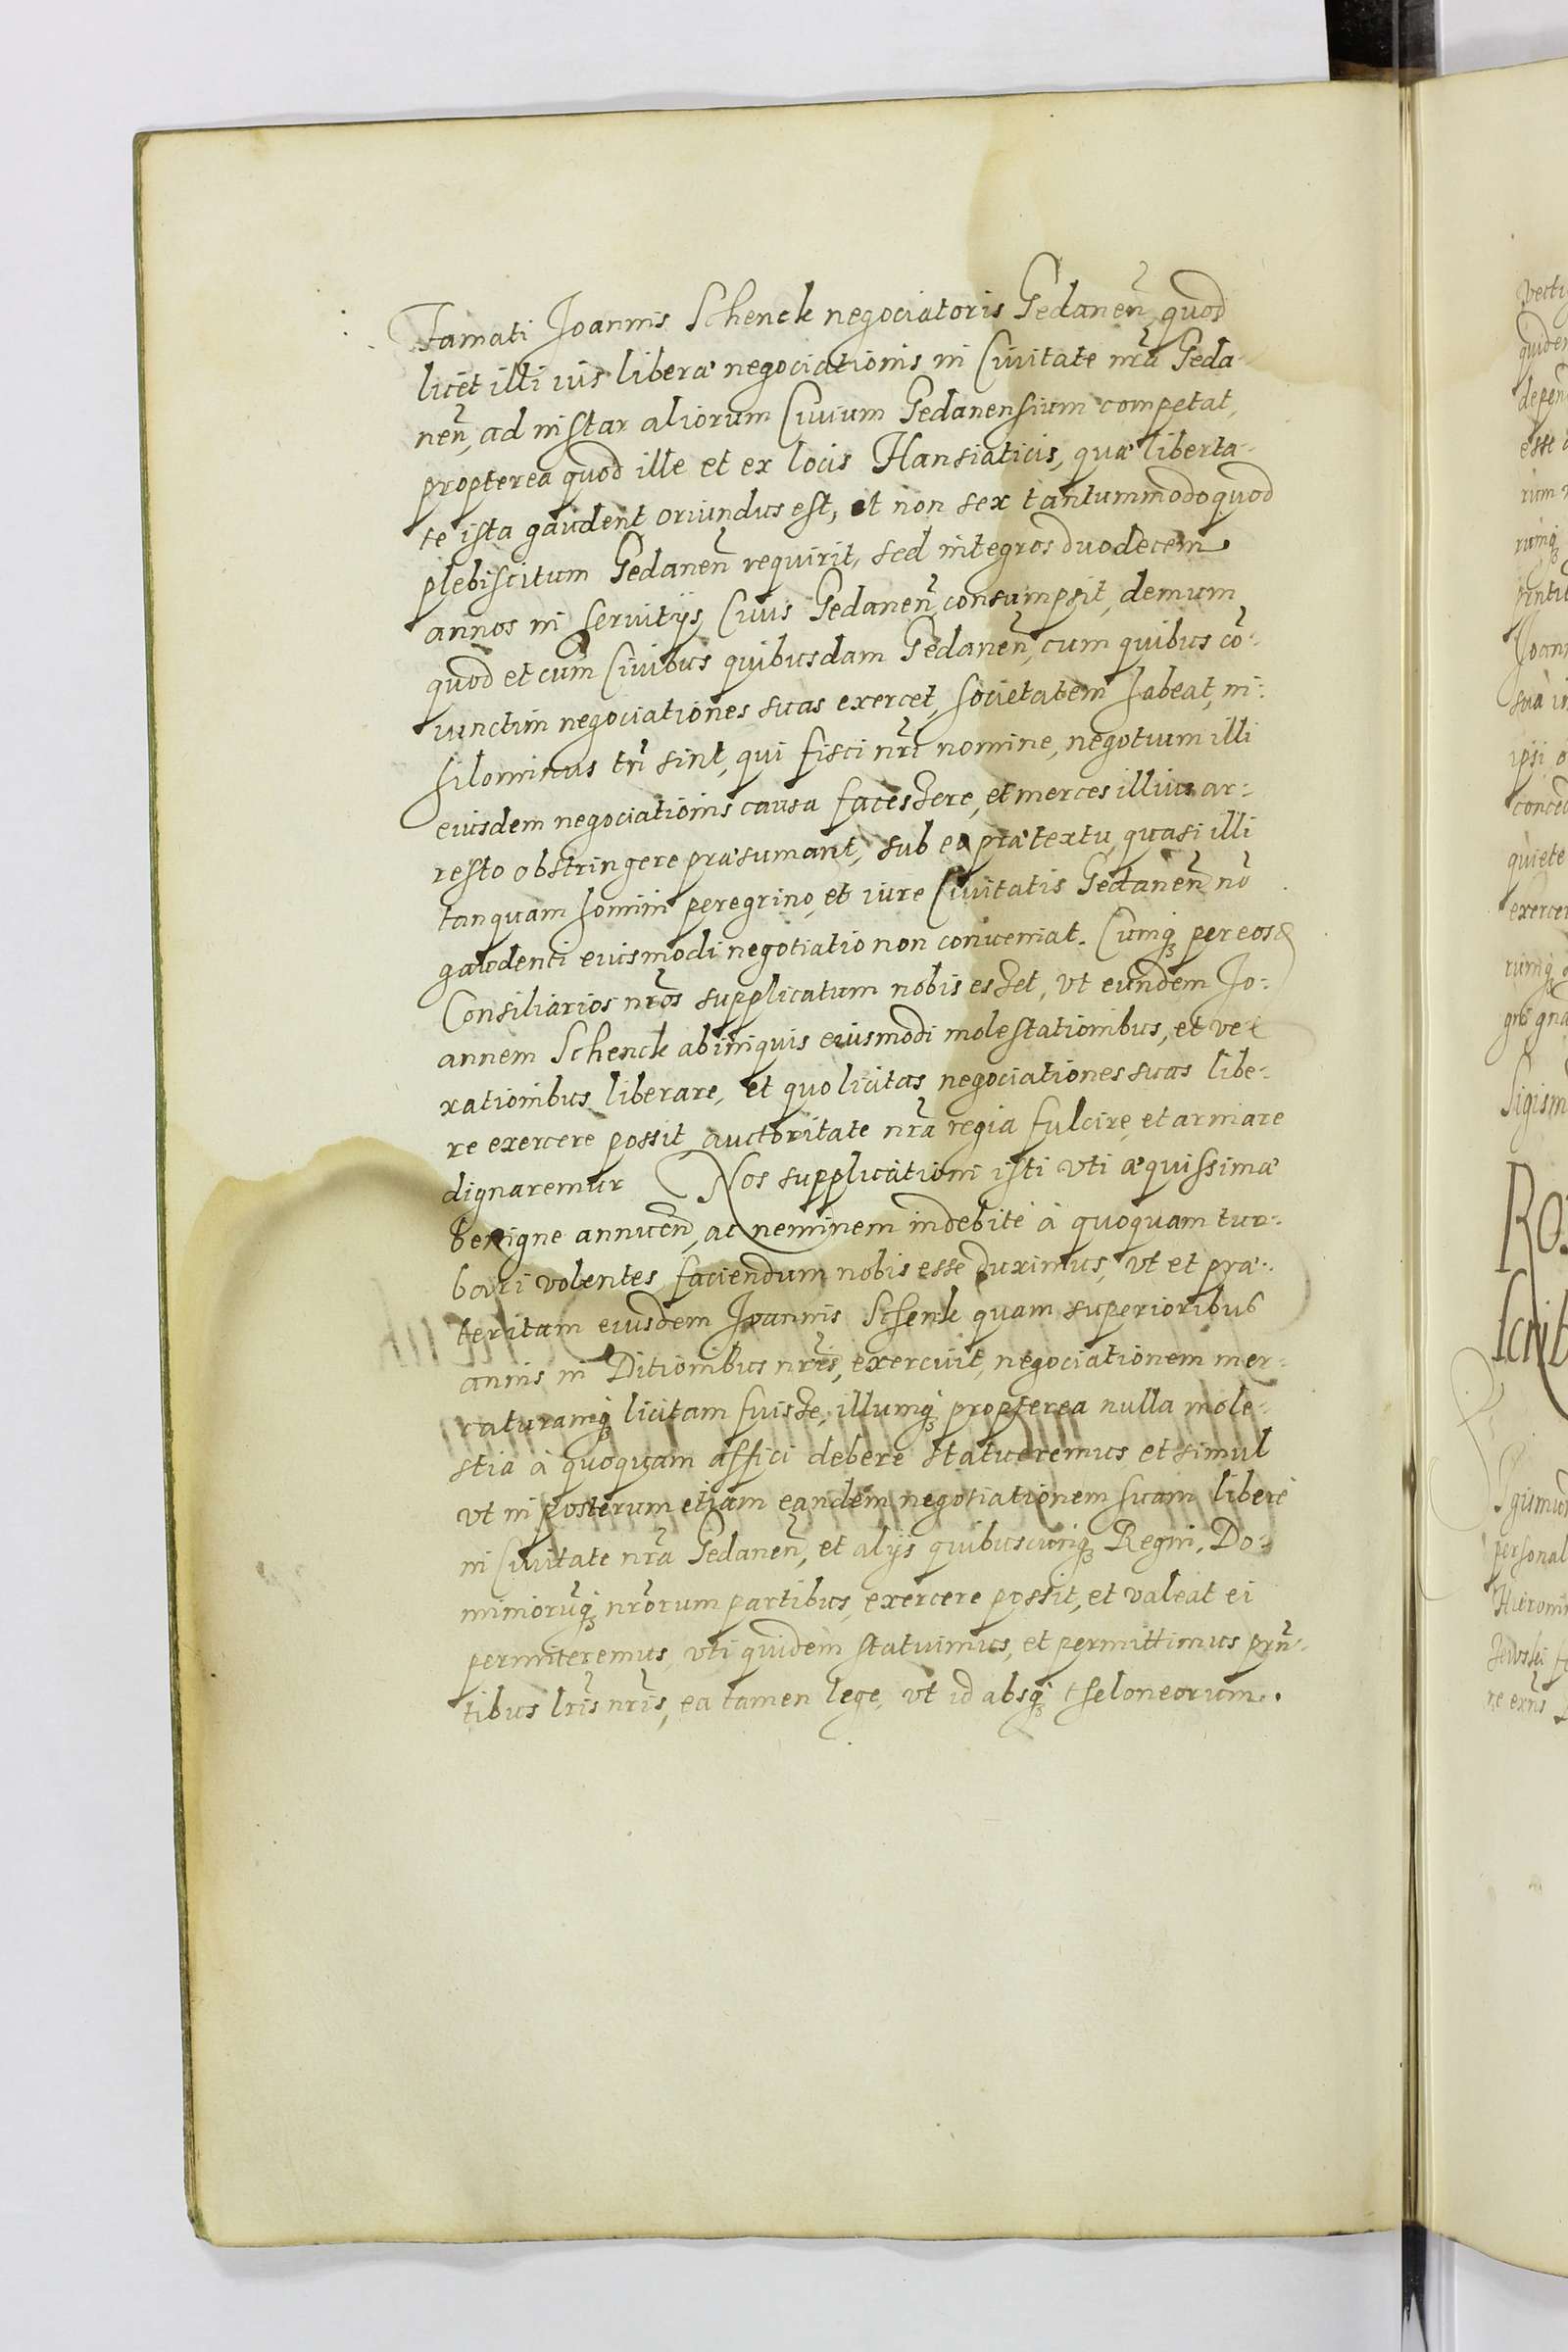 Famati Joannis Schenck negociatoris Gedanen̄, quod
licet illi ius liberæ negociationis in Ciuitate nr̄a Geda-
nen̄, ad instar aliorum Ciuium Gedanensium competat,
propterea quod ille et ex locis Hansiaticis, quæ liberta-
te ista gaudent oriundus est, et non sex tantummodo quod
plebiscitum Gedanen̄ requirit, sed integros duodecem
annos in seruitijs Ciuis Gedanen̄ consumpsit, demum
quod et cum Ciuibus quibusdam Gedanen̄, cum quibus cō-
iunctim negociationes suas exercet, societatem habeat, ni-
hilominus tn̄ sint, qui fisci nr̄i nomine, negotium illi
eiusdem negociationis causa facessere, et merces illius ar-
resto obstringere præsumant, sub eo prætextu, quasi illi
tanquam homini peregrino, et iure Ciuitatis Gedanen̄ nō
gaudenti eiusmodi negotiatio non conueniat. Cumq₃ per eosd
Consiliarios nr̄os supplicatum nobis esset, vt eundem Jo-
annem Schenck ab iniquis eiusmodi molestationibus, et ve-
xationibus liberare, et quo licitas negociationes suas libe-
re exercere possit auctoritate nr̄a regia fulcire, et armare
dignaremur Nos supplicationi isti vti æquissimæ
benigne annuen̄, ac neminem indebitè à quoquam tur-
bari volentes faciendum nobis esse duximus, vt et præ-
teritam eiusdem Joannis Schenk quam superioribus
annis in Ditionibus nr̄is, exercuit, negociationem mer-
caturamq₃ licitam fuisse, illumq₃ propterea nulla mole-
stia à quoquam affici debere statueremus et simul
vt in posterum etiam eandem negotiationem suam liberè
in Ciuitate nr̄a Gedanen̄, et alijs quibuscunq₃ Regni, Do-
miniorūq₃ nr̄orum partibus, exercere possit, et valeat ei
permitteremus, vti quidem statuimus, et permittimus prn̄-
tibus lr̄is nr̄is, ea tamen lege, vt id absq₃ theloneorum